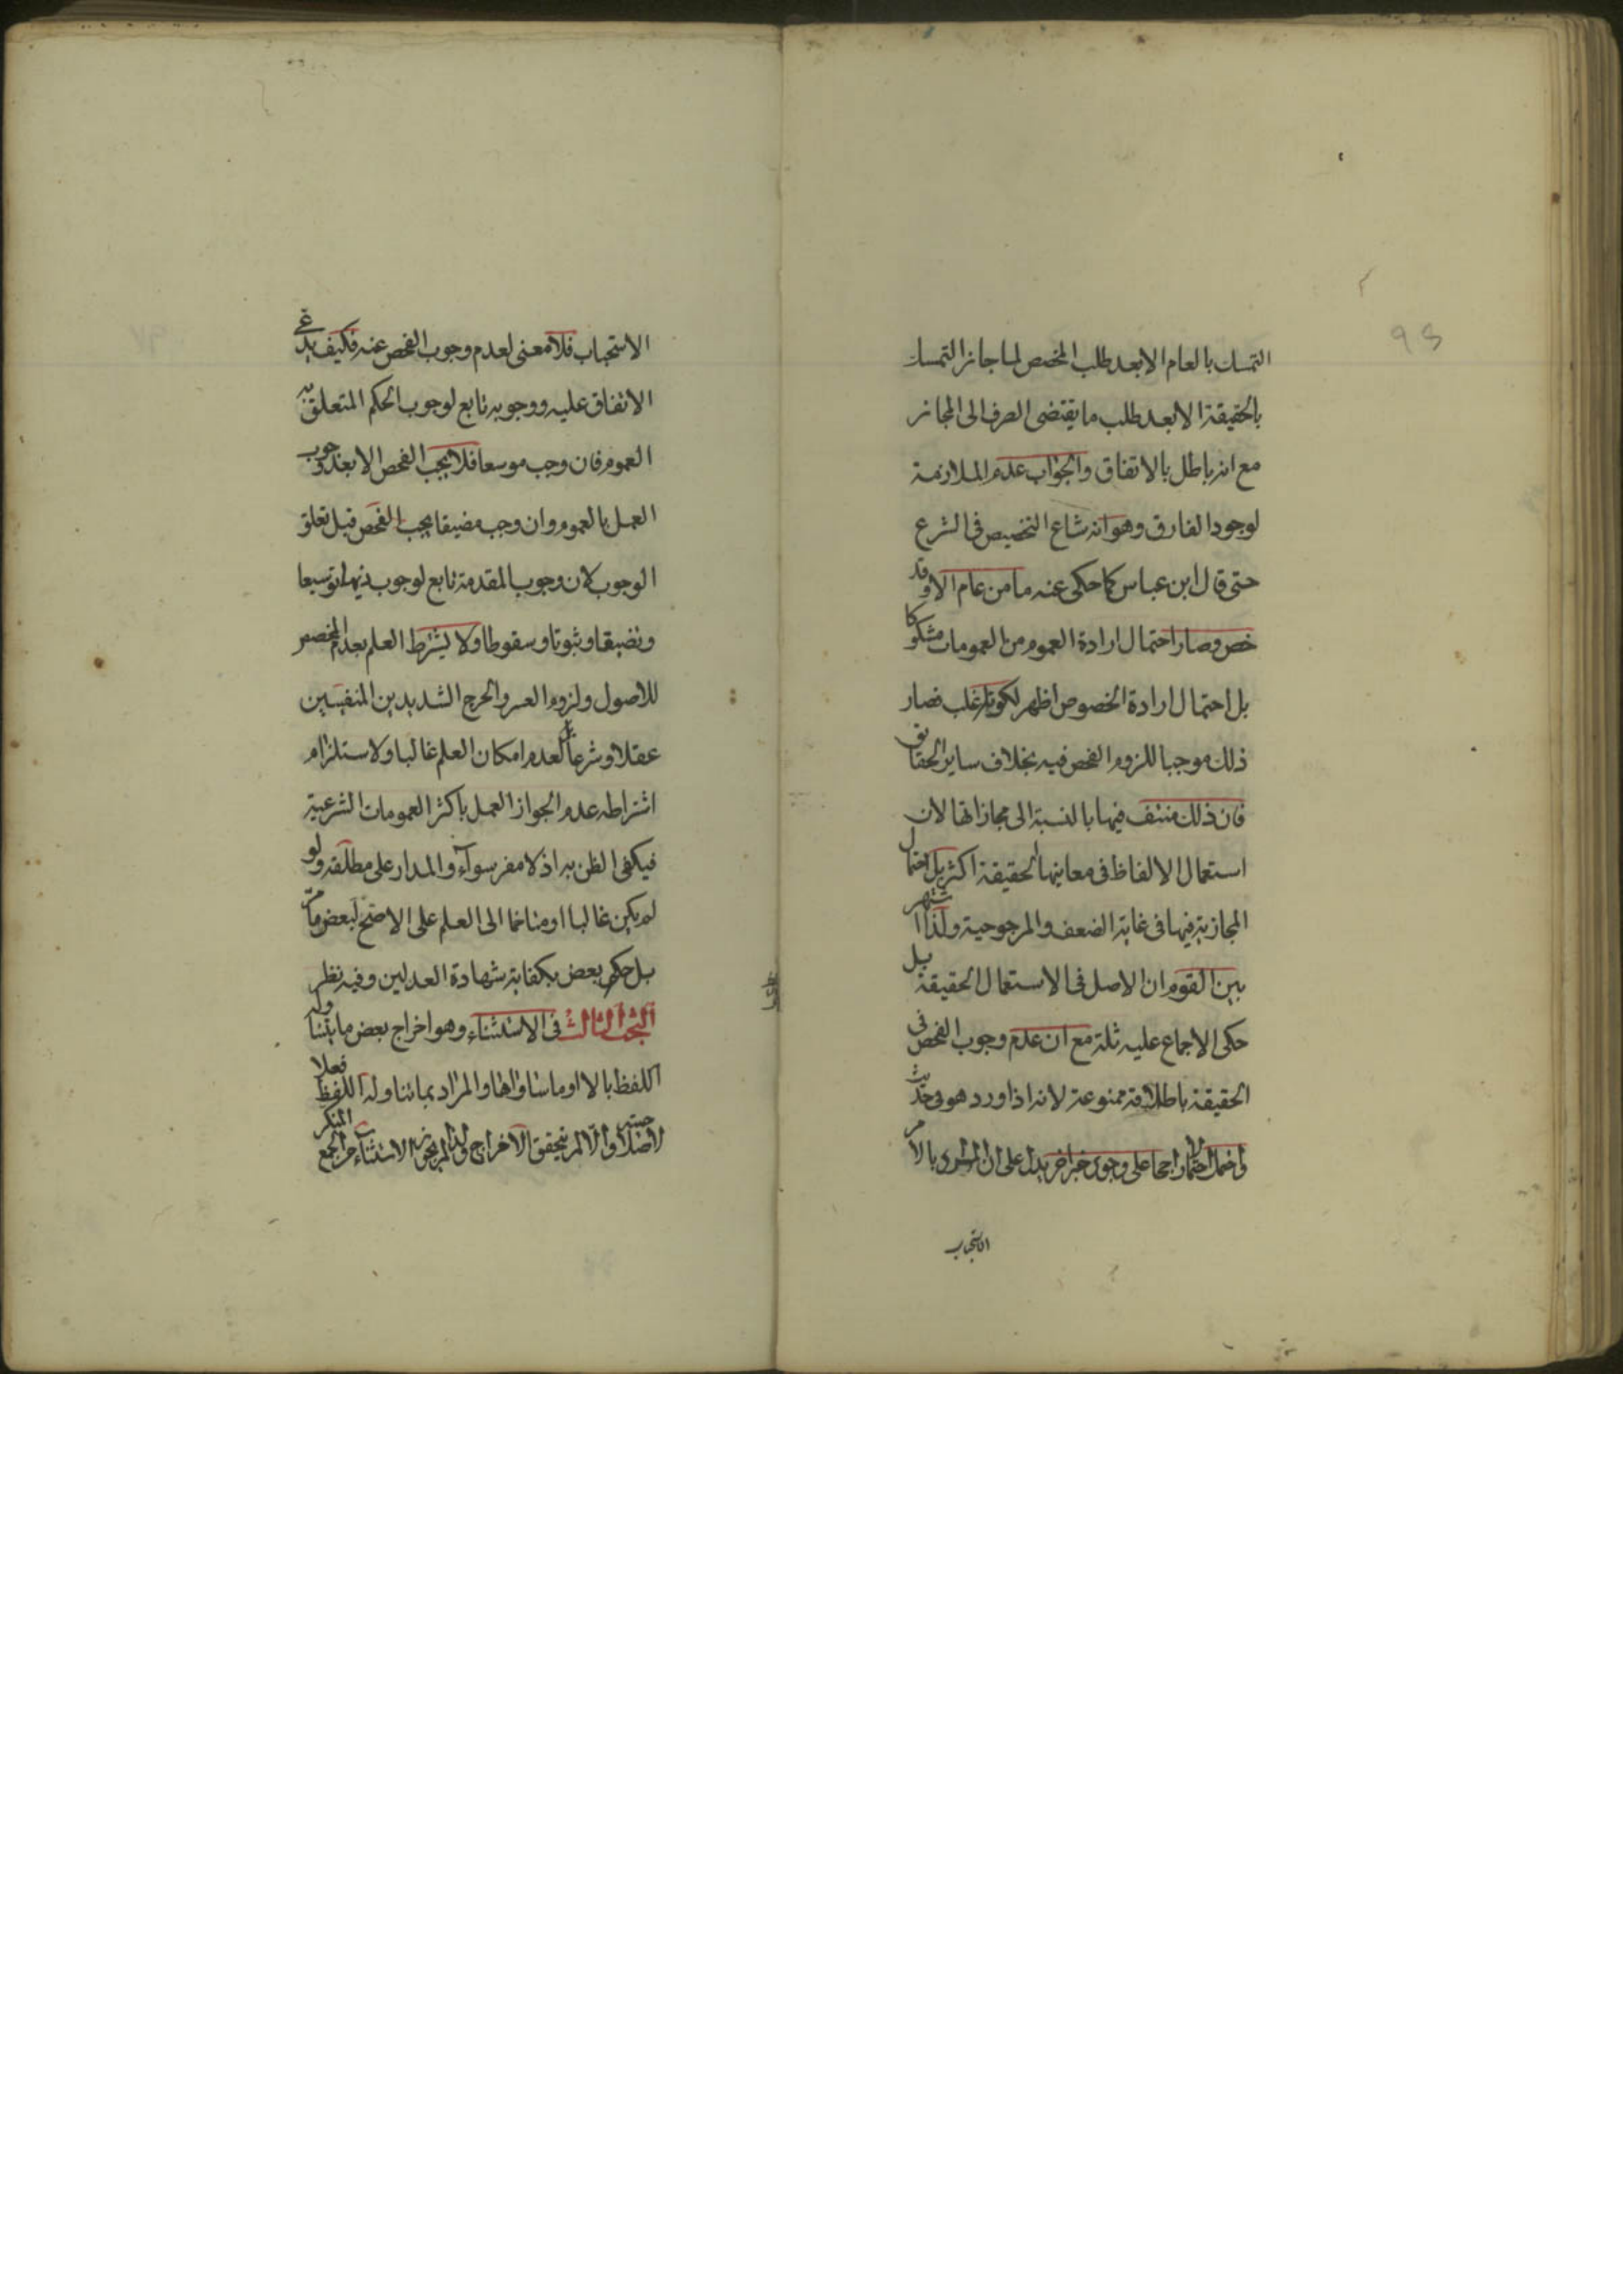 التمسك بالعام الا بعد طلب المخصص لما جاز التمسك
بالحقيقة الا بعد طلب ما يقتضى الصرف الى المجاز
مع انه باطل بالاتفاق والجواب عدم الملازمة
لوجود الفارق وهو انه شاع التخصيص فى الشرع
حتى قال ابن عباس كما حكى عنه ما من عام الا وقد
خص وصار احتمال ارادة العموم من العمومات مشكوكا
بل احتمال ارادة الخصوص اظهر لكونه اغلب فصار
ذلك موجبا للزوم الفحص فيه بخلاف ساير الحقايق
فان ذلك منتف فيها بالنسبة الى مجازاتها لان
استعمال الالفاظ فى معانيها الحقيقة اكثر بل احتمال
المجازية فيها فى غاية الضعف والمرجوحية ولذا اشتهر
بين القوم ان الاصل فى الاستعمال الحقيقة بل
حكى الاجماع عليه ثلة مع ان عدم وجوب الفحص فى
الحقيقة باطلاقه ممنوعة لانه اذا ورد هو فى حديث
واحتمل احتمالا راجحا على وجود خبر اخر يدل على ان المراد بالامر
الاستحباب
96
الاستحباب فلا معنى لعدم وجوب الفحص عنه فكيف يدعى
الاتفاق عليه ووجوبه تابع لوجوب الحكم المتعلق به
العموم فان وجب موسعا فلا يجب الفحص الا بعد وجوب
العمل بالعموم وان وجب مضيقا يجب الفحص قبل تعلق
الوجوب لان وجوب المقدمة تابع لوجوب ذيها توسيعا
وتضيقا وثبوتا وسقوطا ولا يشترط العلم بعدم المخصص
للاصول ولزوم العسر والحرج الشديدين المنفيين
عقلا وشرعا بل لعدم امكان العلم غالبا ولاستلزام
اشتراطه عدم الجواز العمل باكثر العمومات الشرعية
فيكفى الظن به اذ لا مفر سواء والمدار على مطلقه ولو
لم يكن غالبا او متاخما الى العلم على الاصح لبعض ما مر
بل حكم بعض بكفاية شهادة العدلين وفيه نظر
البحث الثالث فى الاستثناء وهو اخراج بعض ما يتناوله
اللفظ بالا او ما ساواها والمراد بما تناوله اللفظ فعلا
لا صلاحيته والا لم يتحقق الاخراج ولذا لم يجوز الاستثناء من الجمع المنكر